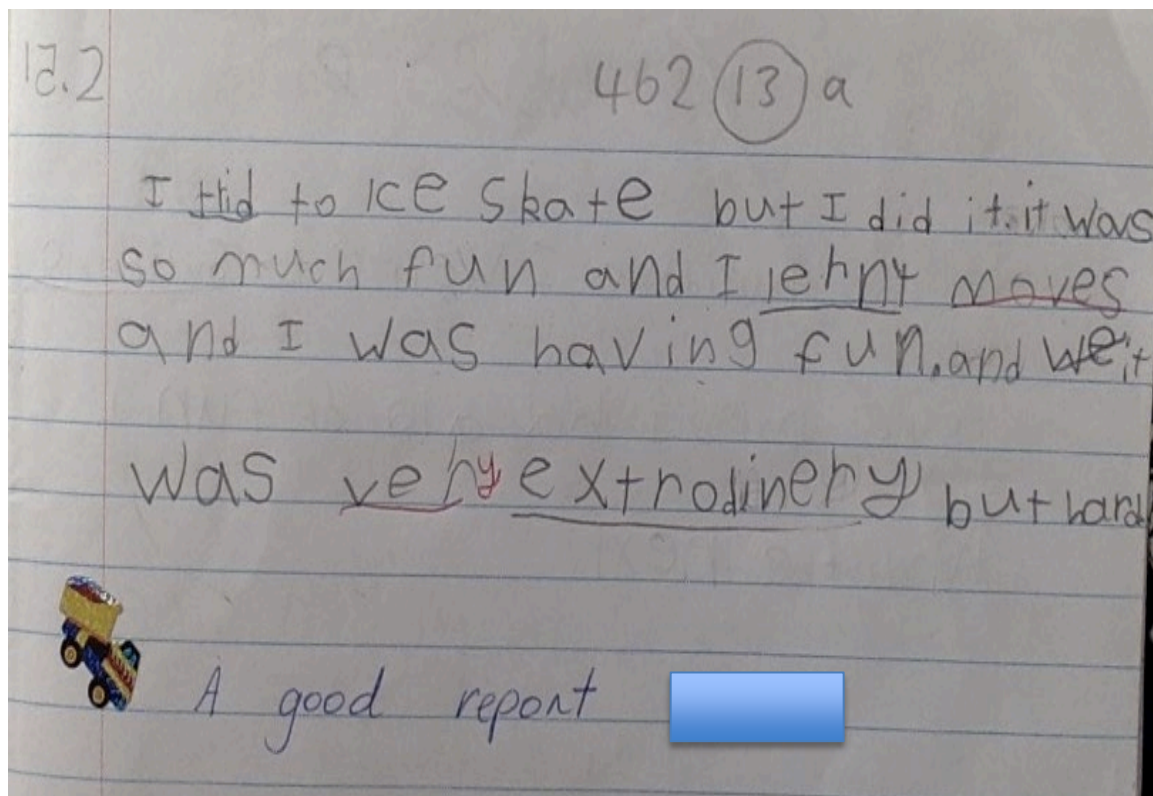 15.2 462 13 a
I trid to Ice Skate but I did it. it was
so much fun and I lernt moves
and I was having fun. and we it
was very extrodinery but hard
A good report